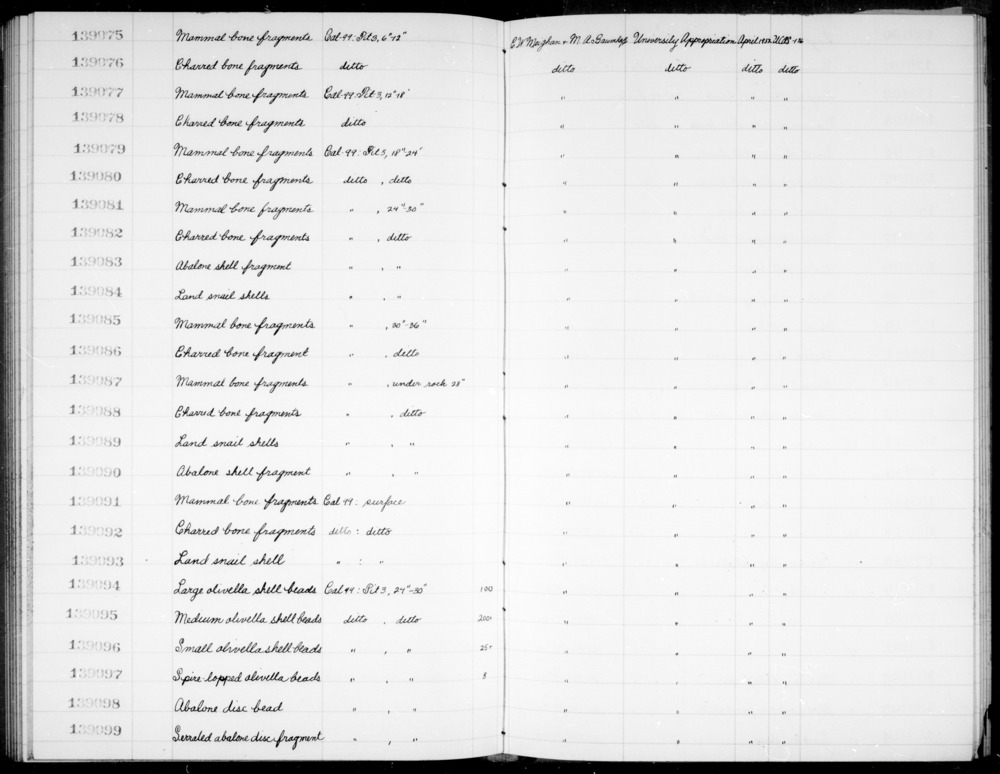 139975 Mammal bone fragments Cal-99: Pit 3, 6"-12" C.W. Meighan + M.A. University Appropriation April 1952
139976 Charred bone fragments ditto ditto ditto ditto ditto
139977 Mammal bone fragments Cal-99: Pit 3, 12"18' " " " "
139978 Charred bone fragments ditto " " " "
139979 Mammal bone fragments Cal-99: Pit 3, 18"-24' " " " "
139980 Charred bone fragments ditto , ditto " " " "
139981 Mammal bone fragments " , 24"-30" " " " "
139982 Charred bone fragments " , ditto " " " "
139983 Abalone shell fragment " , " " " " "
139984 Land snail shells " , " " " " "
139985 Mammal bone fragments " , 30"-36" " " " "
139986 Charred bone fragment " , ditto " " " "
139987 Mammal bone fragments " , under rock 28" " " " "
139988 Charred bone fragments " , ditto " " " "
139989 Land snail shells " , " " " " "
139990 Abalone shell fragment " , " " " " "
139991 Mammal bone fragments Cal 99: surface " " " "
139992 Charred bone fragments ditto : ditto " " " "
139993 Land snail shell " : " " " " "
139994 Large olivella shell beads Cal 99: Pit 3, 24"-30" 100 " " " "
139995 Medium olivella shell beads ditto , ditto 200+ " " " "
139996 Small olivella shell beads " , " 25+ " " " "
139997 Spire lopped olivella beads " , " " " " "
139998 Abalone disc bead " , " " " " "
139999 Serrated abalone disc fragment " , " " " " "